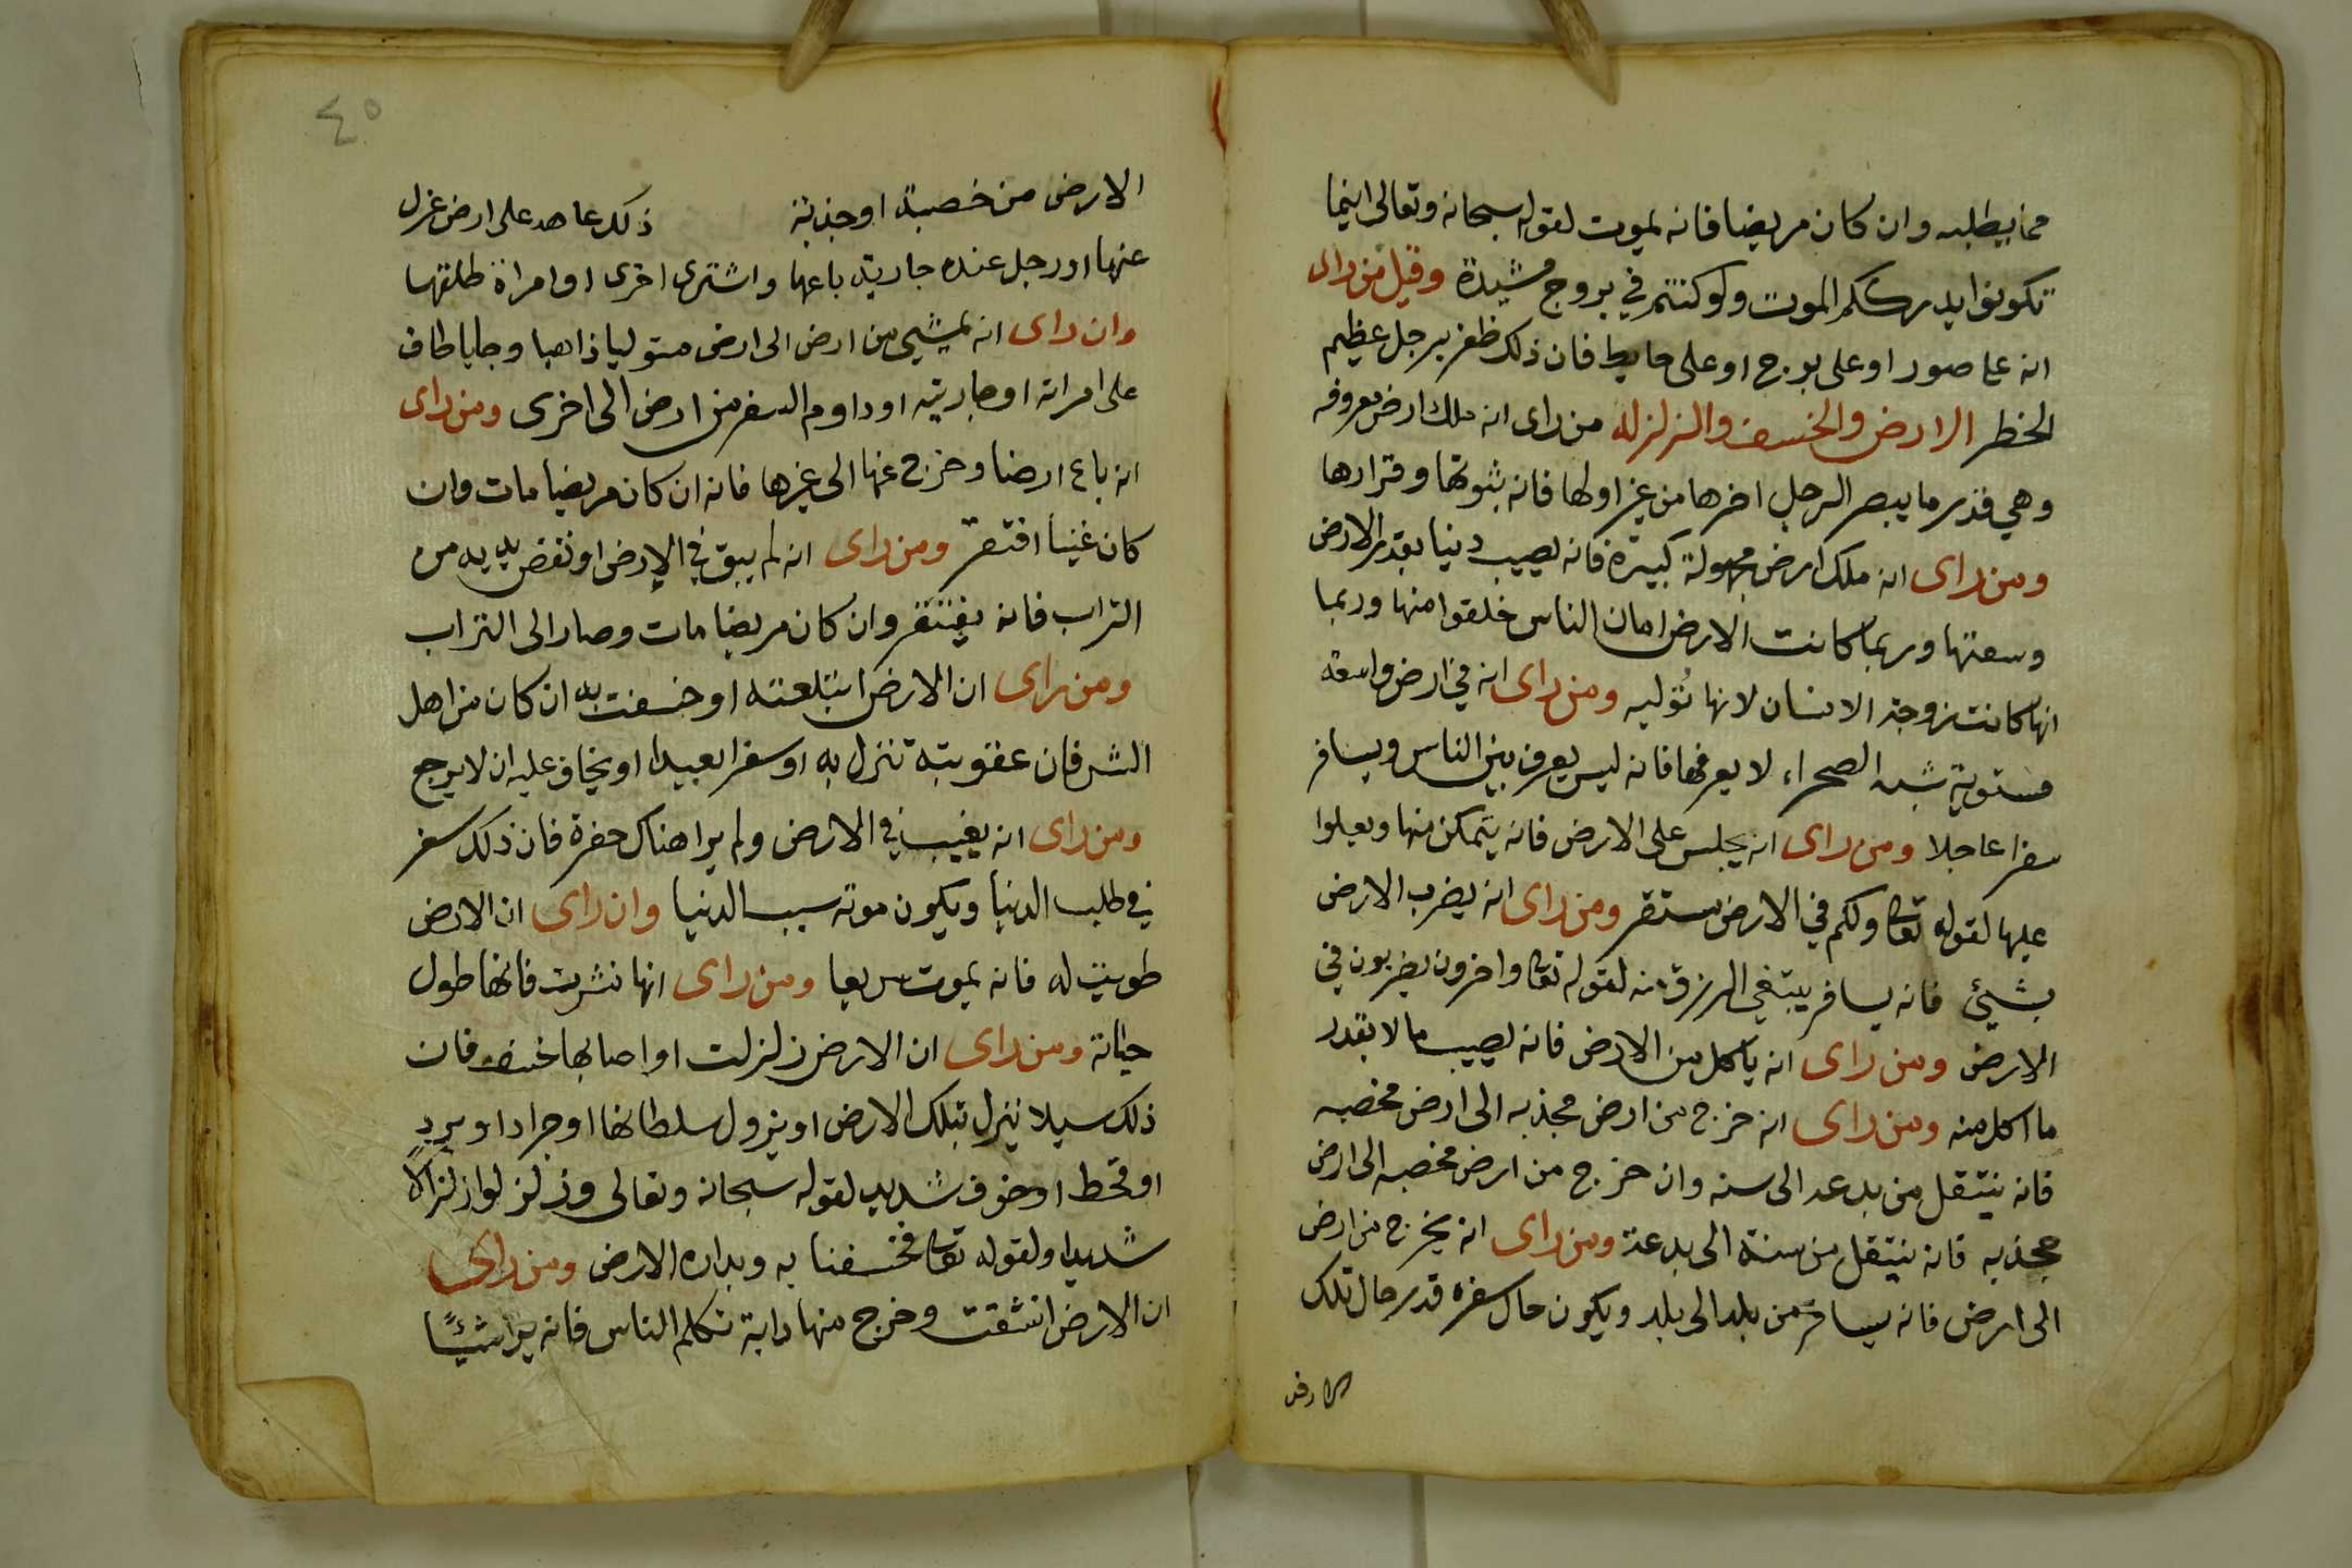 مما يطلبه وان كان مريضا فانه يموت لقوله سبحانه وتعالى اينما
تكونوا يدرككم الموت ولو كنتم في بروج مشيدة وقيل من راى
انه علا صور او على بوج او على حايط فان ذلك ظفر برجل عظيم
الخطر الارض والخسف والزلزله من راى انه ملك ارض معروفه
وهي قدر ما يبصر الرجل اخرها من غير اولها فانه بثبوتها وقرارها
ومن راى انه ملك ارض مجهولة كبيرة فانه يصيب دنيا بقدر الارض
وسعتها وربما كانت الارض امان الناس خلقوا منها وربما
انها كانت زوجة الانسان لانها تؤليه ومن راى انه في ارض واسعه
مستوية شبه الصحراء لا يعرفها فانه ليس يعرف بين الناس ويسافر
سفرا عاجلا ومن راى انه يجلس على الارض فانه يتمكن منها ويعلوا
عليها لقوله تعا ولكم في الارض مستقر ومن راى انه يضرب الارض
بشيئ فانه يسافر يبتغي الرزق منه لقوله تعا واخرون يضربون في
الارض ومن راى انه ياكل من الارض فانه يصيب مالا بقدر
ما اكل منه ومن راى انه خرج من ارض مجذبه الى ارض مخصبه
فانه ينتقل من بدعه الى سنه وان خرج من ارض مخصبه الى ارض
مجذبه فانه ينتقل من سنة الى بدعة ومن راى انه يخرج من ارض
الى ارض فانه يسافر من بلد الى بلد ويكون حال سفره قدر حال تلك
الارض
٤٥
الارض من خصبة او جذبة ذلك عاهد على ارض عزل
عنها او رجل عنده جارية باعها واشترى اخرى او امراة طلقها
وان راى انه يمشي من ارض الى ارض متوليا ذاهبا وجايا طاف
على امراته او جاريته او داوم السفر من ارض الى اخرى ومن راى
انه باع ارضا وخرج عنها الى غيرها فانه ان كان مريضا مات وان
كان غنيا افتقر ومن راى انه لم يبق في الارض او نفض يديه من
التراب فانه يفتقر وان كان مريضا مات وصار الى التراب
ومن راى ان الارض ابتلعته او خسفت به ان كان من اهل
الشر فان عقوبته تنزل به او سفرا بعيدا او يخاف عليه ان لا يرجع
ومن راى انه يغيب في الارض ولم يرا هناك حفرة فان ذلك سفر
في طلب الدنيا ويكون موته سبب الدنيا وان راى ان الارض
طويت له فانه يموت سريعا ومن راى انها نشرت فانها طول
حياته ومن راى ان الارض زلزلت او اصابها خسف فان
ذلك سيلا ينزل بتلك الارض او يزول سلطانها او جرادا وبردٍ
او قحط او خوف شديد لقوله سبحانه وتعالى وزلزلوا زلزالاً
شديدا ولقوله تعا فخسفنا به وبداره الارض ومن راى
ان الارض انشقت وخرج منها دابة تكلم الناس فانه يرا شيئًا